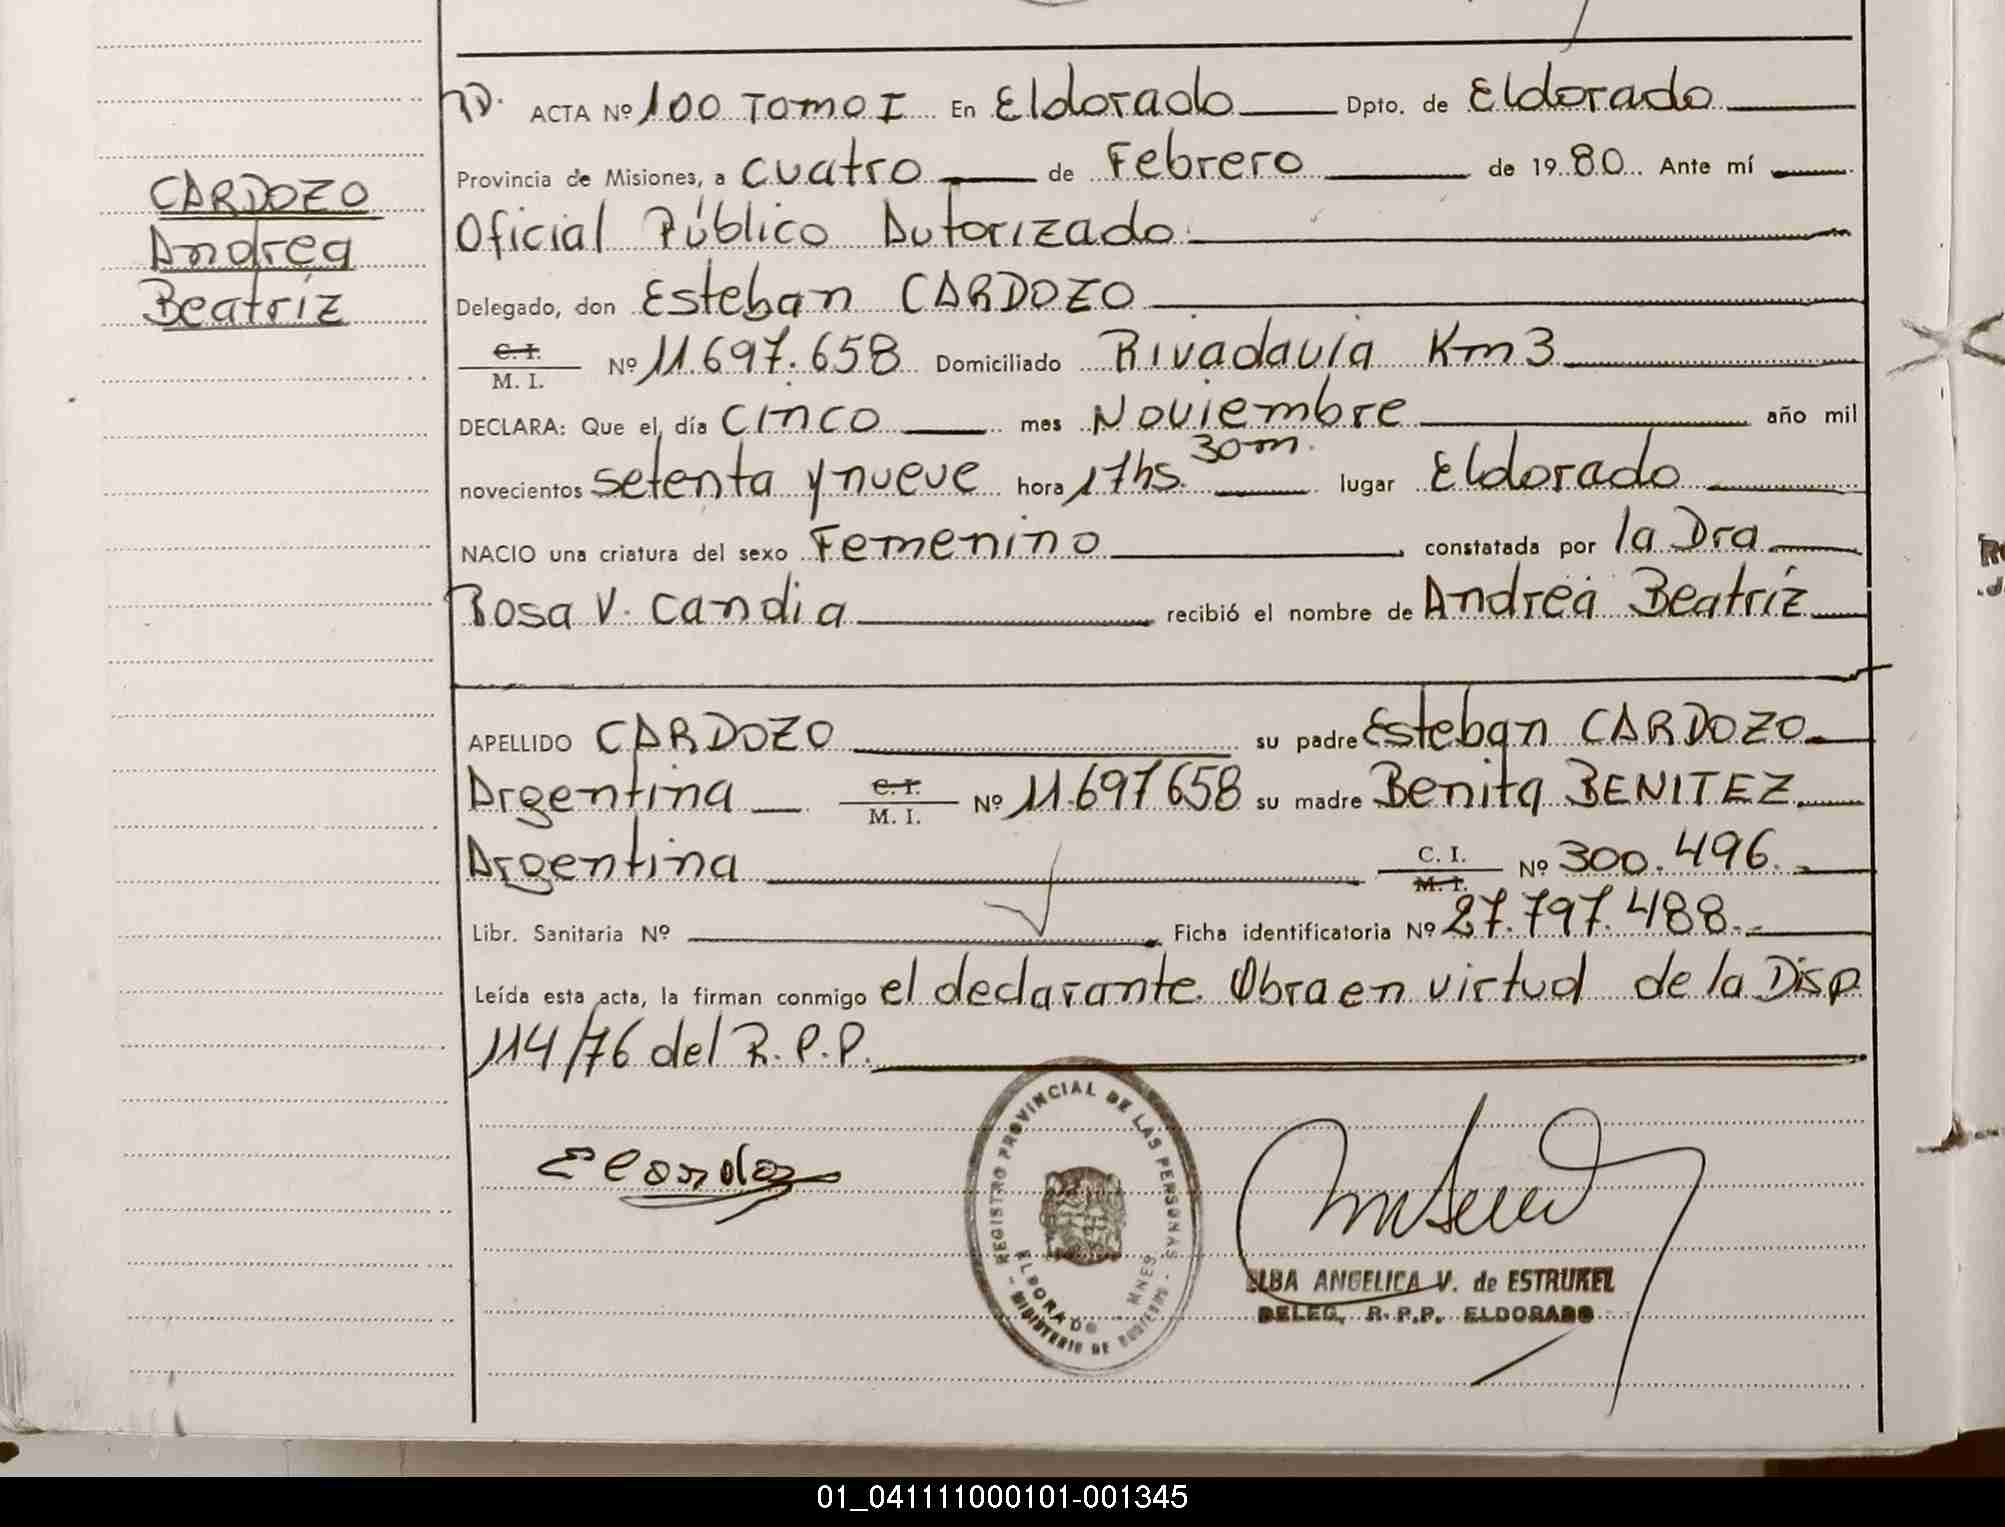 ACTA Nº 100 TOMO I En Eldorado Dpto. de Eldorado
Provincia de Misiones, a cuatro de Febrero de 1980 Ante mí
Oficial Público Autorizado
CARDOZO
Andrea
Beatríz
Delegado, don Esteban CARDOZO
C. I.
M. I. Nº 11.697.658 Domiciliado Rivadavia Km3
DECLARA: Que el día cinco mes Noviembre año mil
novecientos setenta y nueve hora 17hs. 30m. lugar Eldorado
NACIO una criatura del sexo Femenino constatada por la Dra
Rosa V. Candia recibió el nombre de Andrea Beatríz
APELLIDO CARDOZO su padre Esteban CARDOZO
Argentina C. I.
M. I. Nº 11.697658 su madre Benita BENITEZ
Argentina C. I.
M. I. Nº 300.496.
Libr. Sanitaria Nº Ficha identificatoria Nº 27.797.488.
Leída esta acta, la firman conmigo el declarante. Obra en virtud de la Disp
114/76 del R.P.P.
REGISTRO PROVINCIAL DE LAS PERSONAS
ELDORADO - MNES
MINISTERIO DE GOBIERNO
ELBA ANGELICA V. de ESTRUKEL
DELEG. R.P.P. ELDORADO
01_041111000101-001345